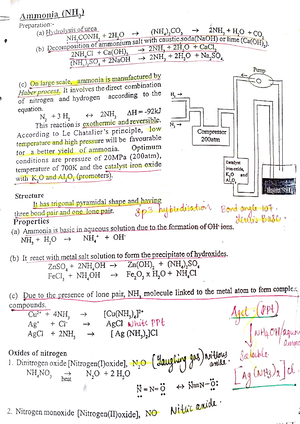 Ammonia (NH₃)
Preparation:-
(a) Hydrolysis of urea
NH₂CONH₂ + 2H₂O → (NH₄)₂CO₃ → 2NH₃ + H₂O + CO₂
(b) Decomposition of ammonium salt with caustic soda(NaOH) or lime (Ca(OH)₂).
2NH₄Cl + Ca(OH)₂ → 2NH₃ + 2H₂O + CaCl₂
(NH₄)₂SO₄ + 2NaOH → 2NH₃ + 2H₂O + Na₂SO₄
(c) On large scale, ammonia is manufactured by
Haber process. It involves the direct combination
of nitrogen and hydrogen according to the
equation.
N₂ + 3 H₂ ↔ 2NH₃ ΔH = -92kJ
This reaction is exothermic and reversible.
According to Le Chatalier's principle, low
temperature and high pressure will be favourable
for a better yield of ammonia. Optimum
conditions are pressure of 20MPa (200atm),
temperature of 700K and the catalyst iron oxide
with K₂O and Al₂O₃ (promoters).
Pump
N₂
H₂
Compressor
200atm
Catalyst
iron oxide,
K₂O and
Structure
It has trigonal pyramidal shape and having
three bond pair and one lone pair.
sp3 hybridisation Bond angle 107
Lewis Base.
Properties
(a) Ammonia is basic in aqueous solution due to the formation of OH⁻ ions.
NH₃ + H₂O → NH₄⁺ + OH⁻
(b) It react with metal salt solution to form the precipitate of hydroxides.
ZnSO₄ + 2NH₄OH → Zn(OH)₂ + (NH₄)₂SO₄
FeCl₃ + NH₄OH → Fe₂O₃ x H₂O + NH₄Cl
(c) Due to the presence of lone pair, NH₃ molecule linked to the metal atom to form complex
compounds.
Cu²⁺ + 4NH₃ → [Cu(NH₃)₄]²⁺
Ag⁺ + Cl⁻ → AgCl White PPT
AgCl + 2NH₃ → [Ag (NH₃)₂]Cl
AgCl (PPT)
Soluble
[Ag(NH₃)₂]Cl
Oxides of nitrogen
1. Dinitrogen oxide [Nitrogen(I)oxide], N₂O (Laughing gas) nitrous oxide
NH₄NO₃ → N₂O + 2 H₂O
heat
2. Nitrogen monoxide [Nitrogen(II)oxide], NO Nitric oxide.